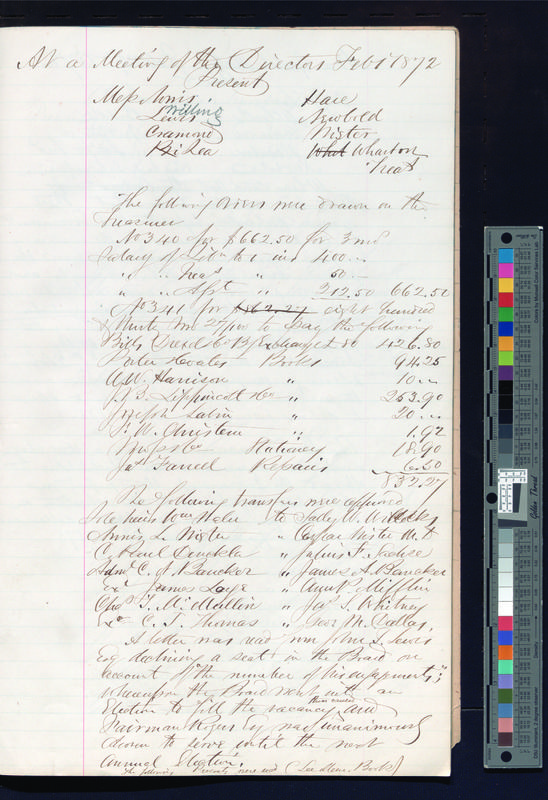 At a Meeting of the Directors Feb 1 1872
Present
Mess Norris Hare
Willing
Lewis Newbold
Cramond Wister
Rea Wharton
Treas
The following orders were drawn on the
Treasurer
No 340 for $662.50 for 3 mos
Salary of Libn to 1 inst 400 ..
" " Treas " 50 ..
" " Asst " 212.50 662.50
No 341 for $862.27 eight hundred
& thirty two 27/100 to pay the following
Bills Drexel & Co B/Exchange £80 426.80
Porter & Coates Books 94.25
A.W. Harrison " 10 ..
J.B. Lippincott & Co " 253.90
Joseph Sabin " 20 ..
F.W. Christern " 1.92
Stationery 18.90
Jas Farrell Repairs 6.50
832.27
The following transfers were approved
to Sally W.
Annis L. Wister " Caspar Wister M.D.
C. Pearl " Julius F. Sachse
Adms C. A. Bancker " James A. Bancker
Exr James " Ann P. Mifflin
T. McMullin " Jas S. Whitney
C. J. Thomas " Geo M. Dallas,
A letter was read from John S. Lewis
Esq declining a seat in the Board on
account of "the number of his engagements";
Whereupon the Board went into an
Election to fill the vacancy, and
Fairman Rogers Esq was unanimously
chosen to serve until the next
annual Election.
The following were read (See Mem. Book)